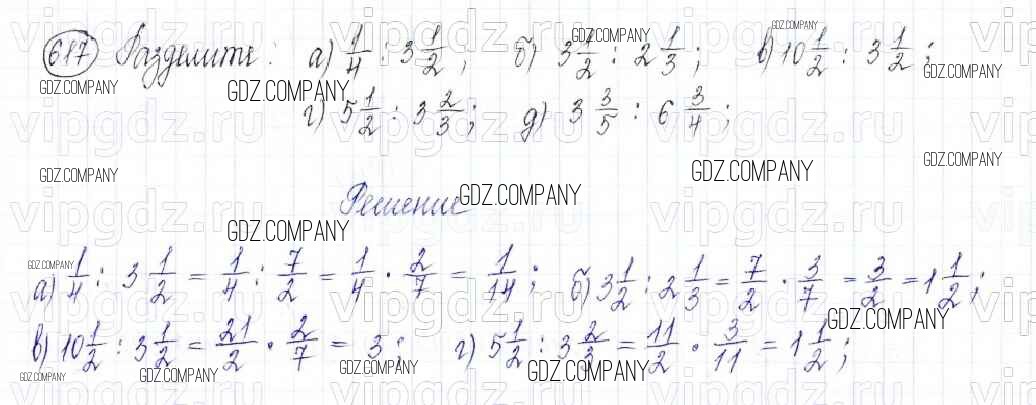 617 Разделите: а) 1/4 : 3 1/2; б) 3 1/2 : 2 1/3; в) 10 1/2 : 3 1/2;
г) 5 1/2 : 3 2/3; д) 3 3/5 : 6 3/4;
Решение
а) 1/4 : 3 1/2 = 1/4 : 7/2 = 1/4 · 2/7 = 1/14; б) 3 1/2 : 2 1/3 = 7/2 · 3/7 = 3/2 = 1 1/2;
в) 10 1/2 : 3 1/2 = 21/2 · 2/7 = 3; г) 5 1/2 : 3 2/3 = 11/2 · 3/11 = 1 1/2;
GDZ.COMPANY
vipgdz.ru